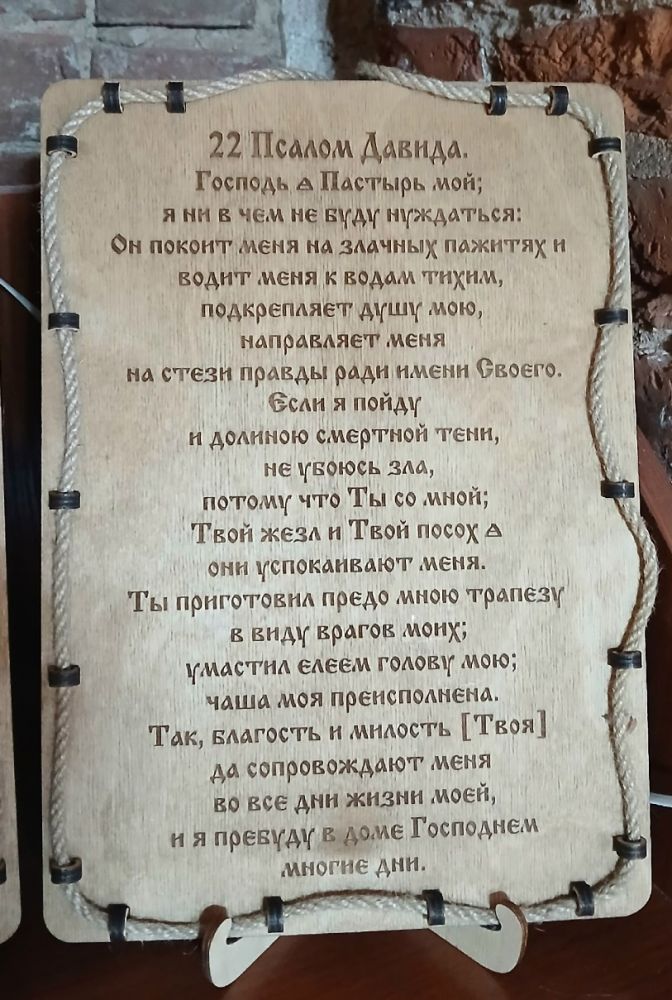 22 Псалом Давида.
Господь ѧ Пастырь мой;
я ни в чем не буду нуждаться:
Он покоит меня на злачных пажитях и
водит меня к водам тихим,
подкрепляет душу мою,
направляет меня
на стези правды ради имени Своего.
Если я пойду
и долиною смертной тени,
не убоюсь зла,
потому что Ты со мной;
Твой жезл и Твой посох ѧ
они успокаивают меня.
Ты приготовил предо мною трапезу
в виду врагов моих;
умастил елеем голову мою;
чаша моя преисполнена.
Так, благость и милость [Твоя]
да сопровождают меня
во все дни жизни моей,
и я пребуду в доме Господнем
многие дни.